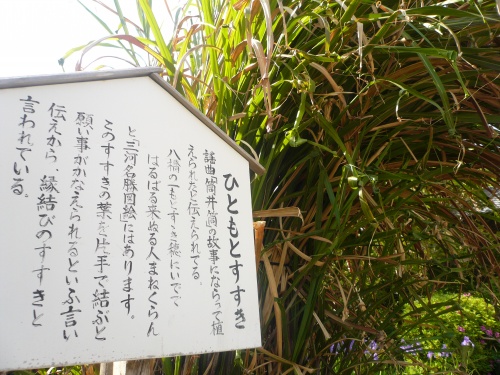 ひともとすすき
謡曲筒井筒の故事にならって植
えられたと伝えられてる。
八橋の一もとすすき穂にいでて
はるばる来ぬる人まねくらん
と「三河名勝図絵」にはあります。
このすすきの葉を片手で結ぶと
願い事がかなえられるといふ言い
伝えから、縁結びのすすきと
言われている。